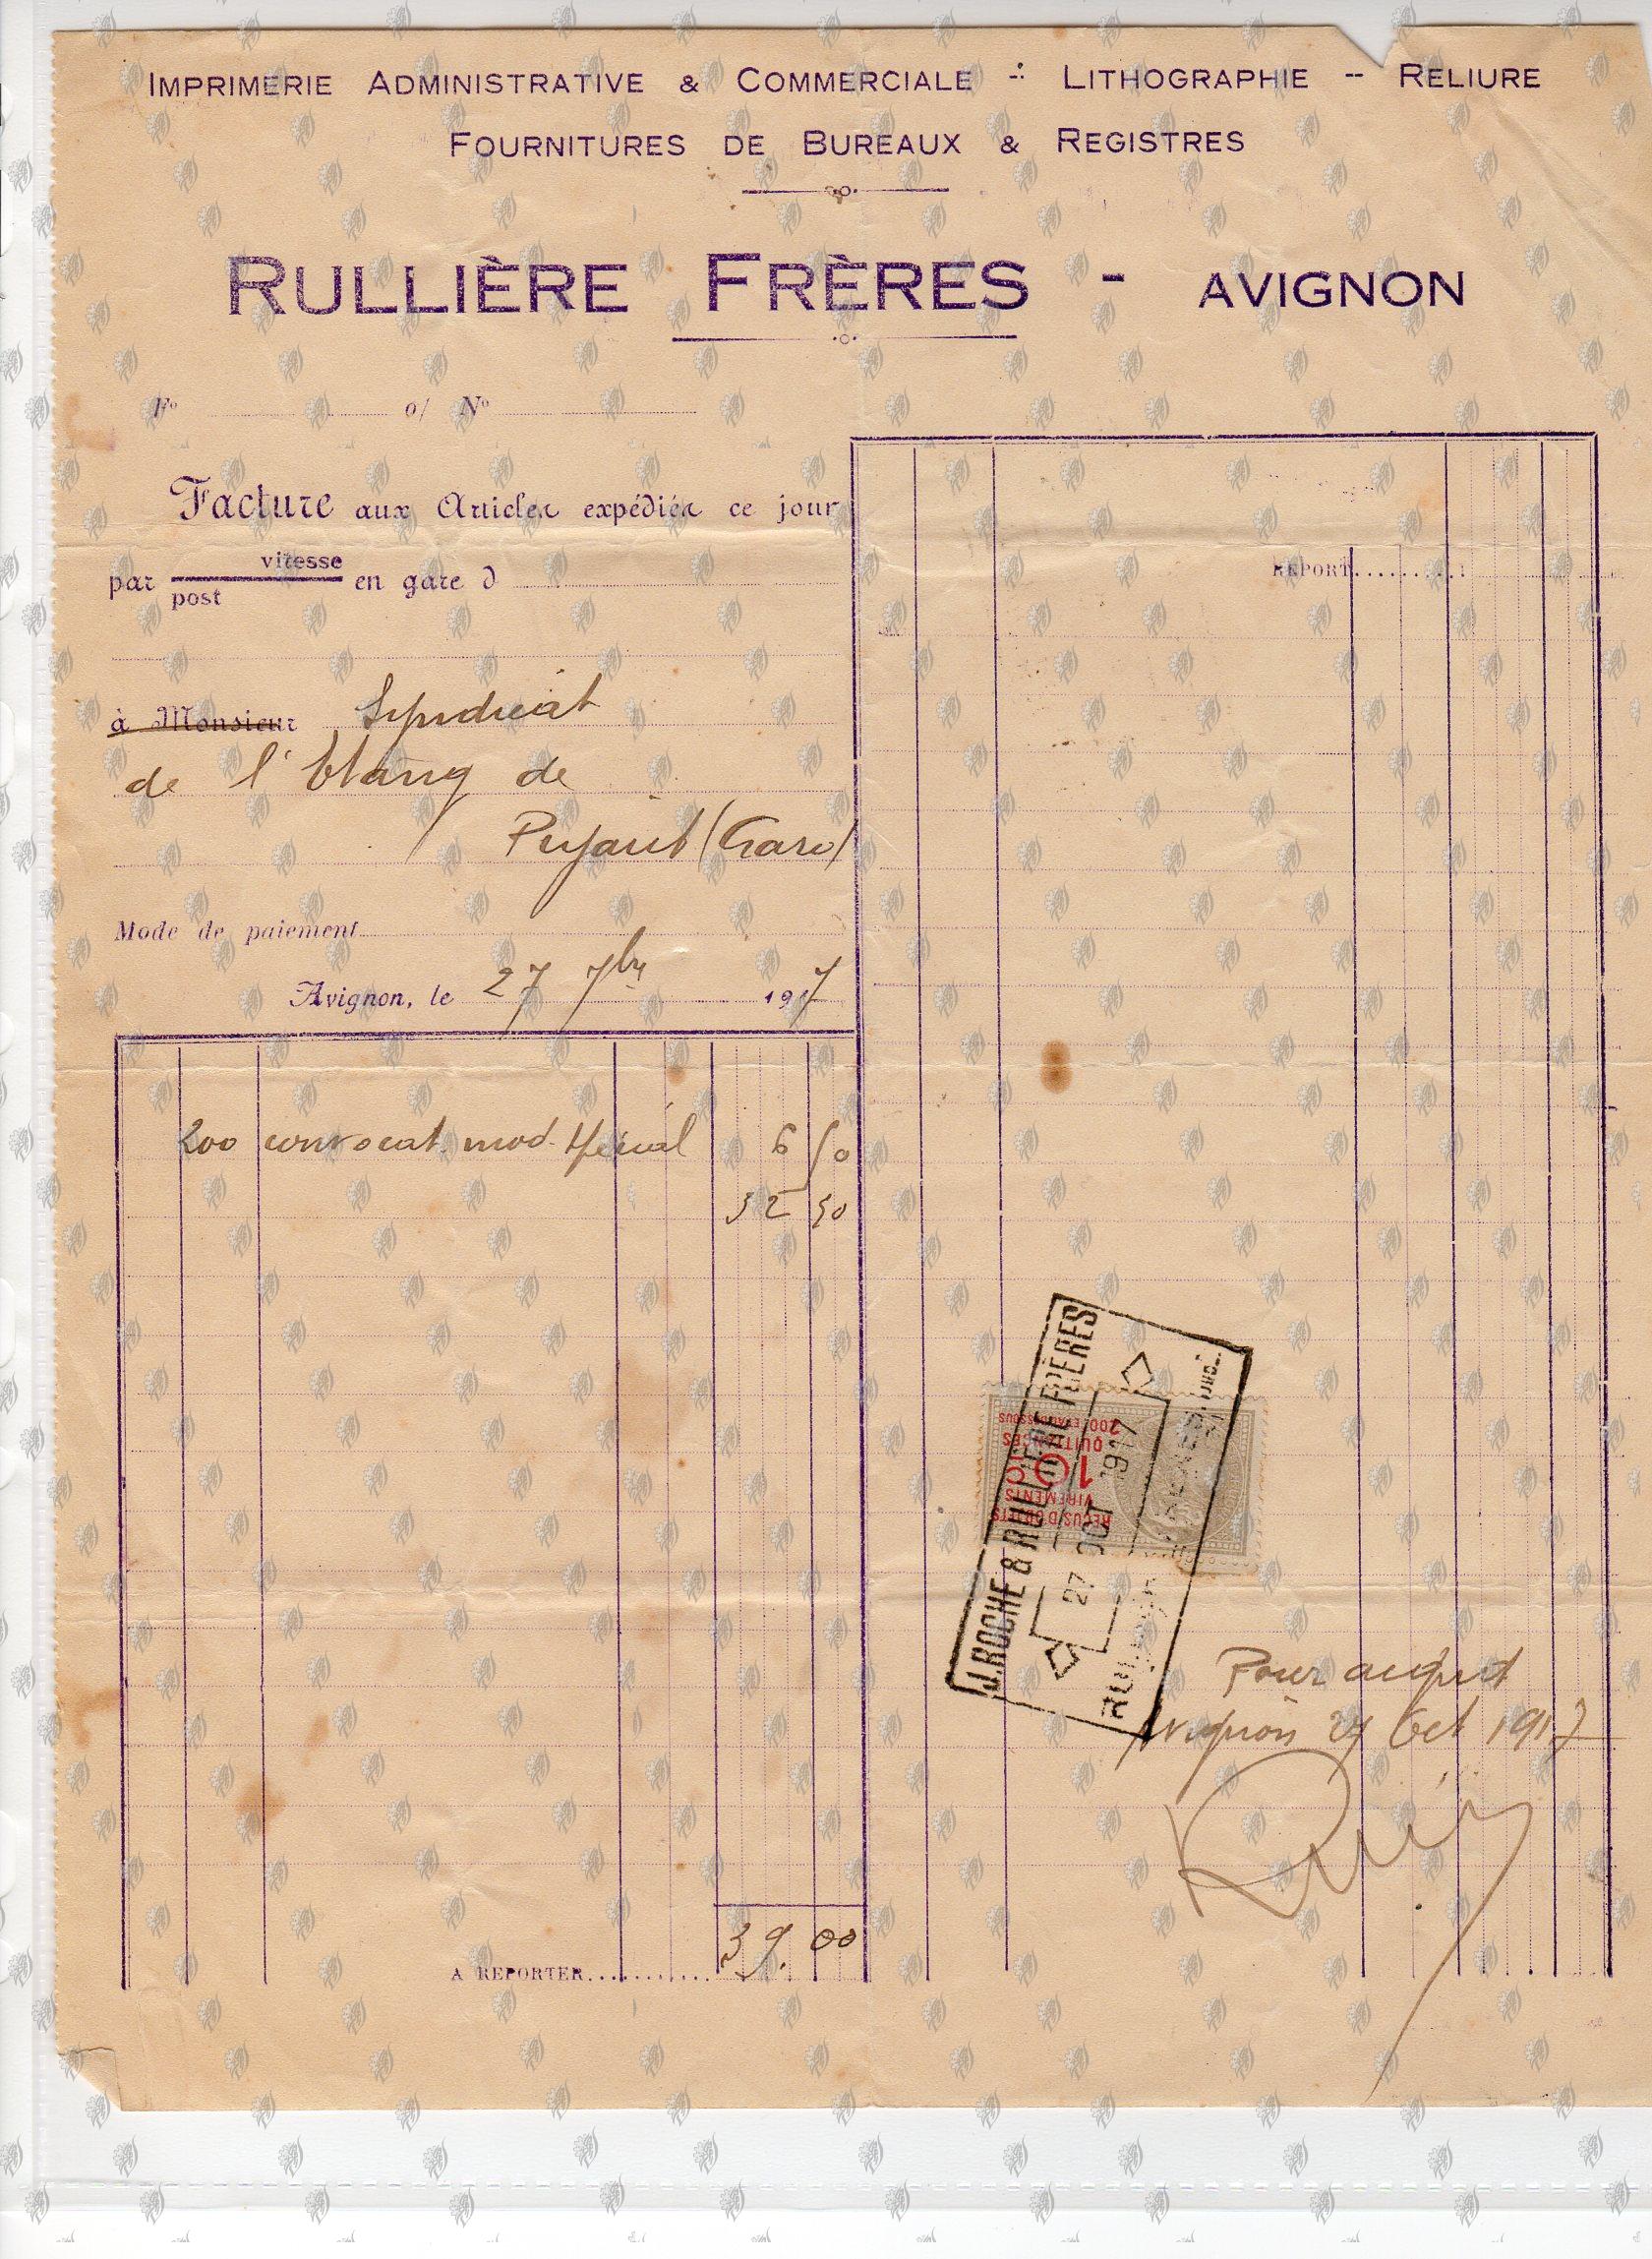 IMPRIMERIE ADMINISTRATIVE & COMMERCIALE -:- LITHOGRAPHIE -- RELIURE
FOURNITURES DE BUREAUX & REGISTRES
RULLIÈRE FRÈRES - AVIGNON
Fo o/ No
Facture aux Articles expédiés ce jour
par vitesse en gare d
post
à Monsieur Syndicat
de l'Etang de
Pujaut (Gard)
Mode de paiement
Avignon, le 27 7bre 1917
200 convocat. mod. spécial 6 50
32 50
A REPORTER........... 39.00
REPORT..........
J. ROCHE & RULLIÈRE FRÈRES
27 OCT 1917
REÇUS D'OBJETS
VIREMENTS
10c
QUITTANCES
200f ET AU DESSOUS
Pour acquit
Avignon 27 Oct 1917